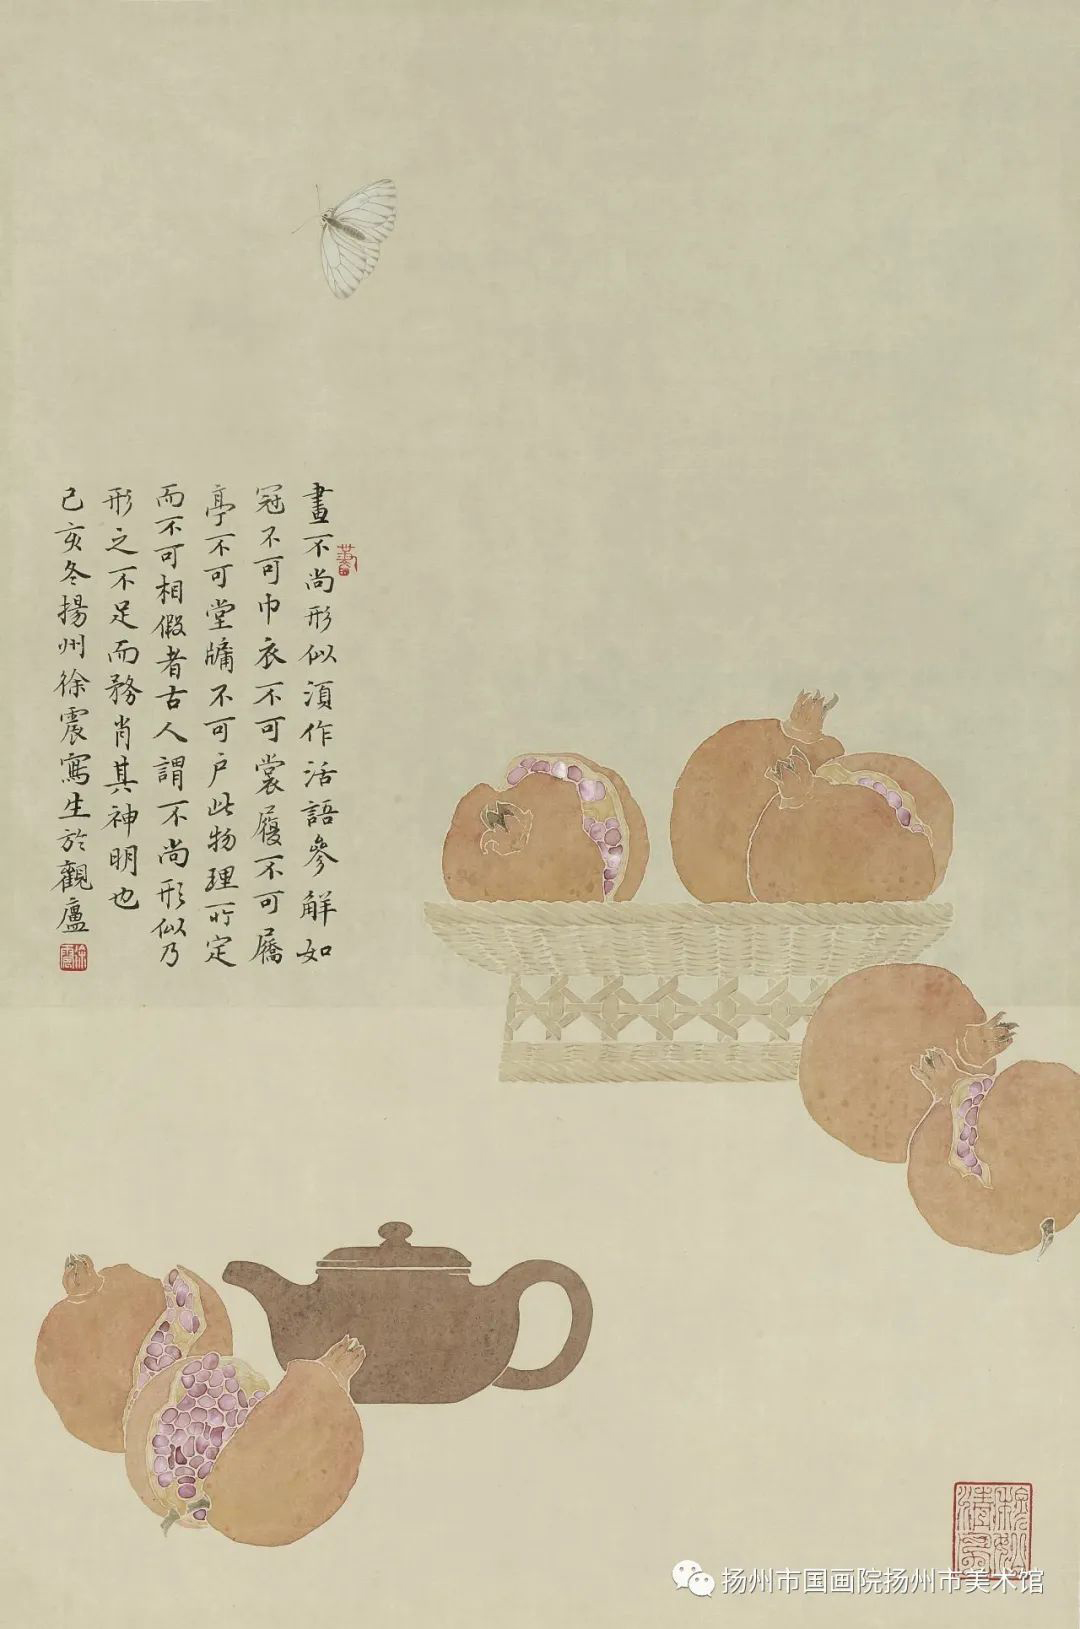 畫不尚形似須作活語參解如
冠不可巾衣不可裳履不可屩
亭不可堂牖不可户此物理所定
而不可相假者古人謂不尚形似乃
形之不足而務肖其神明也
己亥冬揚州徐震寫生於觀廬
徐震
扬州市国画院扬州市美术馆